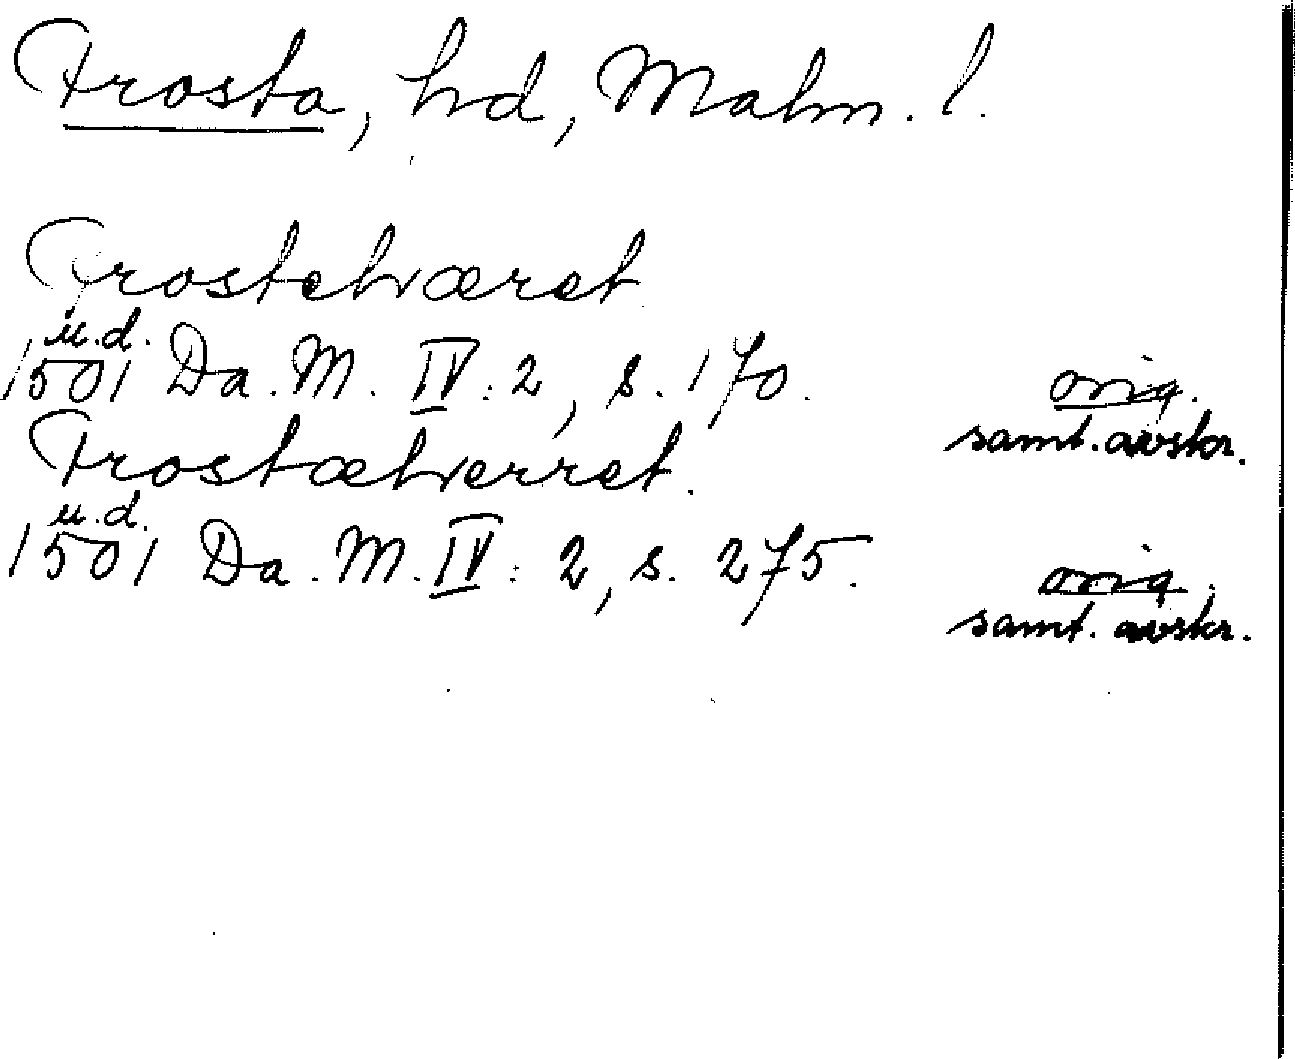 Frosta, hd, Malm. l.
Frostehæret
u.d.
1501 Da. M. IV: 2, s. 170. orig.
samt. avskr.
Frostæherret.
u.d.
1501 Da. M. IV: 2, s. 275. orig.
samt. avskr.